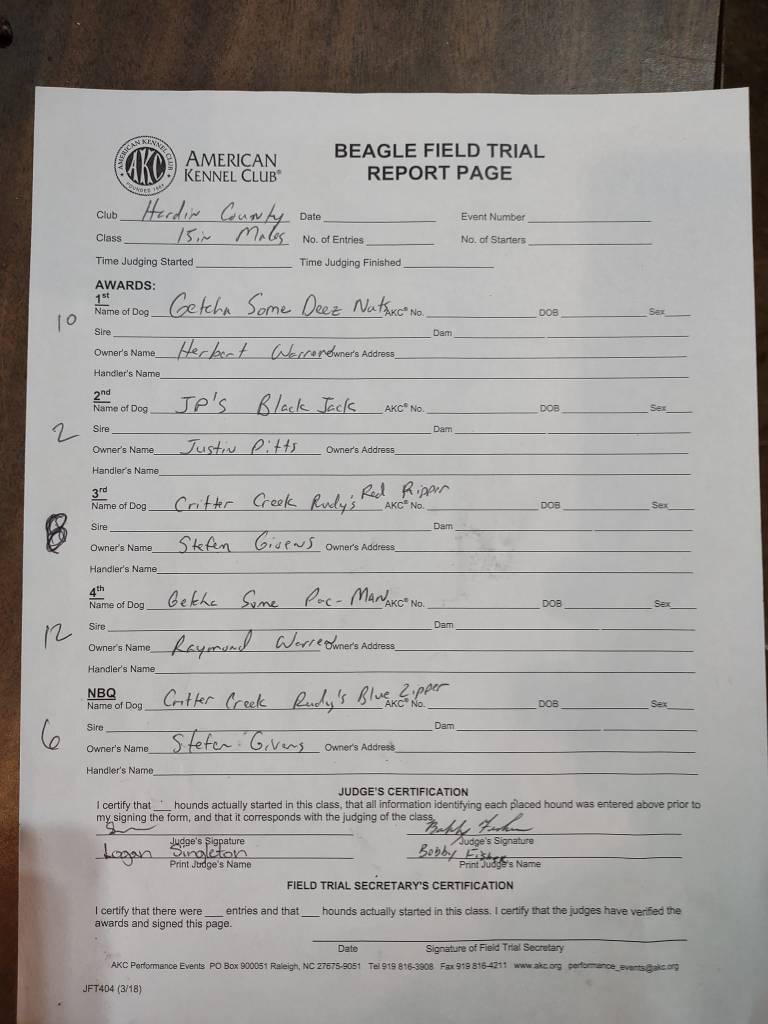 AMERICAN KENNEL CLUB
AKC
FOUNDED 1884
AMERICAN
KENNEL CLUB®
BEAGLE FIELD TRIAL
REPORT PAGE
Club Hardin County Date Event Number
Class 15in Males No. of Entries No. of Starters
Time Judging Started Time Judging Finished
AWARDS:
1st
10 Name of Dog Getcha Some Deez Nuts AKC® No. DOB Sex
Sire Dam
Owner's Name Herbert Warren Owner's Address
Handler's Name
2nd
Name of Dog JP'S Black Jack AKC® No. DOB Sex
2 Sire Dam
Owner's Name Justin Pitts Owner's Address
Handler's Name
3rd
Name of Dog Critter Creek Rudy's Red Ripper AKC® No. DOB Sex
8 Sire Dam
Owner's Name Stefen Givens Owner's Address
Handler's Name
4th
Name of Dog Getcha Some Pac-MAN AKC® No. DOB Sex
12 Sire Dam
Owner's Name Raymond Warren Owner's Address
Handler's Name
NBQ
Name of Dog Critter Creek Rudy's Blue Zipper AKC® No. DOB Sex
6 Sire Dam
Owner's Name Stefen Givens Owner's Address
Handler's Name
JUDGE'S CERTIFICATION
I certify that ___ hounds actually started in this class, that all information identifying each placed hound was entered above prior to
my signing the form, and that it corresponds with the judging of the class.
Bobby Fisher
Judge's Signature Judge's Signature
Logan Singleton Bobby Fisher
Print Judge's Name Print Judge's Name
FIELD TRIAL SECRETARY'S CERTIFICATION
I certify that there were ___ entries and that ___ hounds actually started in this class. I certify that the judges have verified the
awards and signed this page.
Date Signature of Field Trial Secretary
AKC Performance Events PO Box 900051 Raleigh, NC 27675-9051 Tel 919 816-3908 Fax 919 816-4211 www.akc.org performance_events@akc.org
JFT404 (3/18)